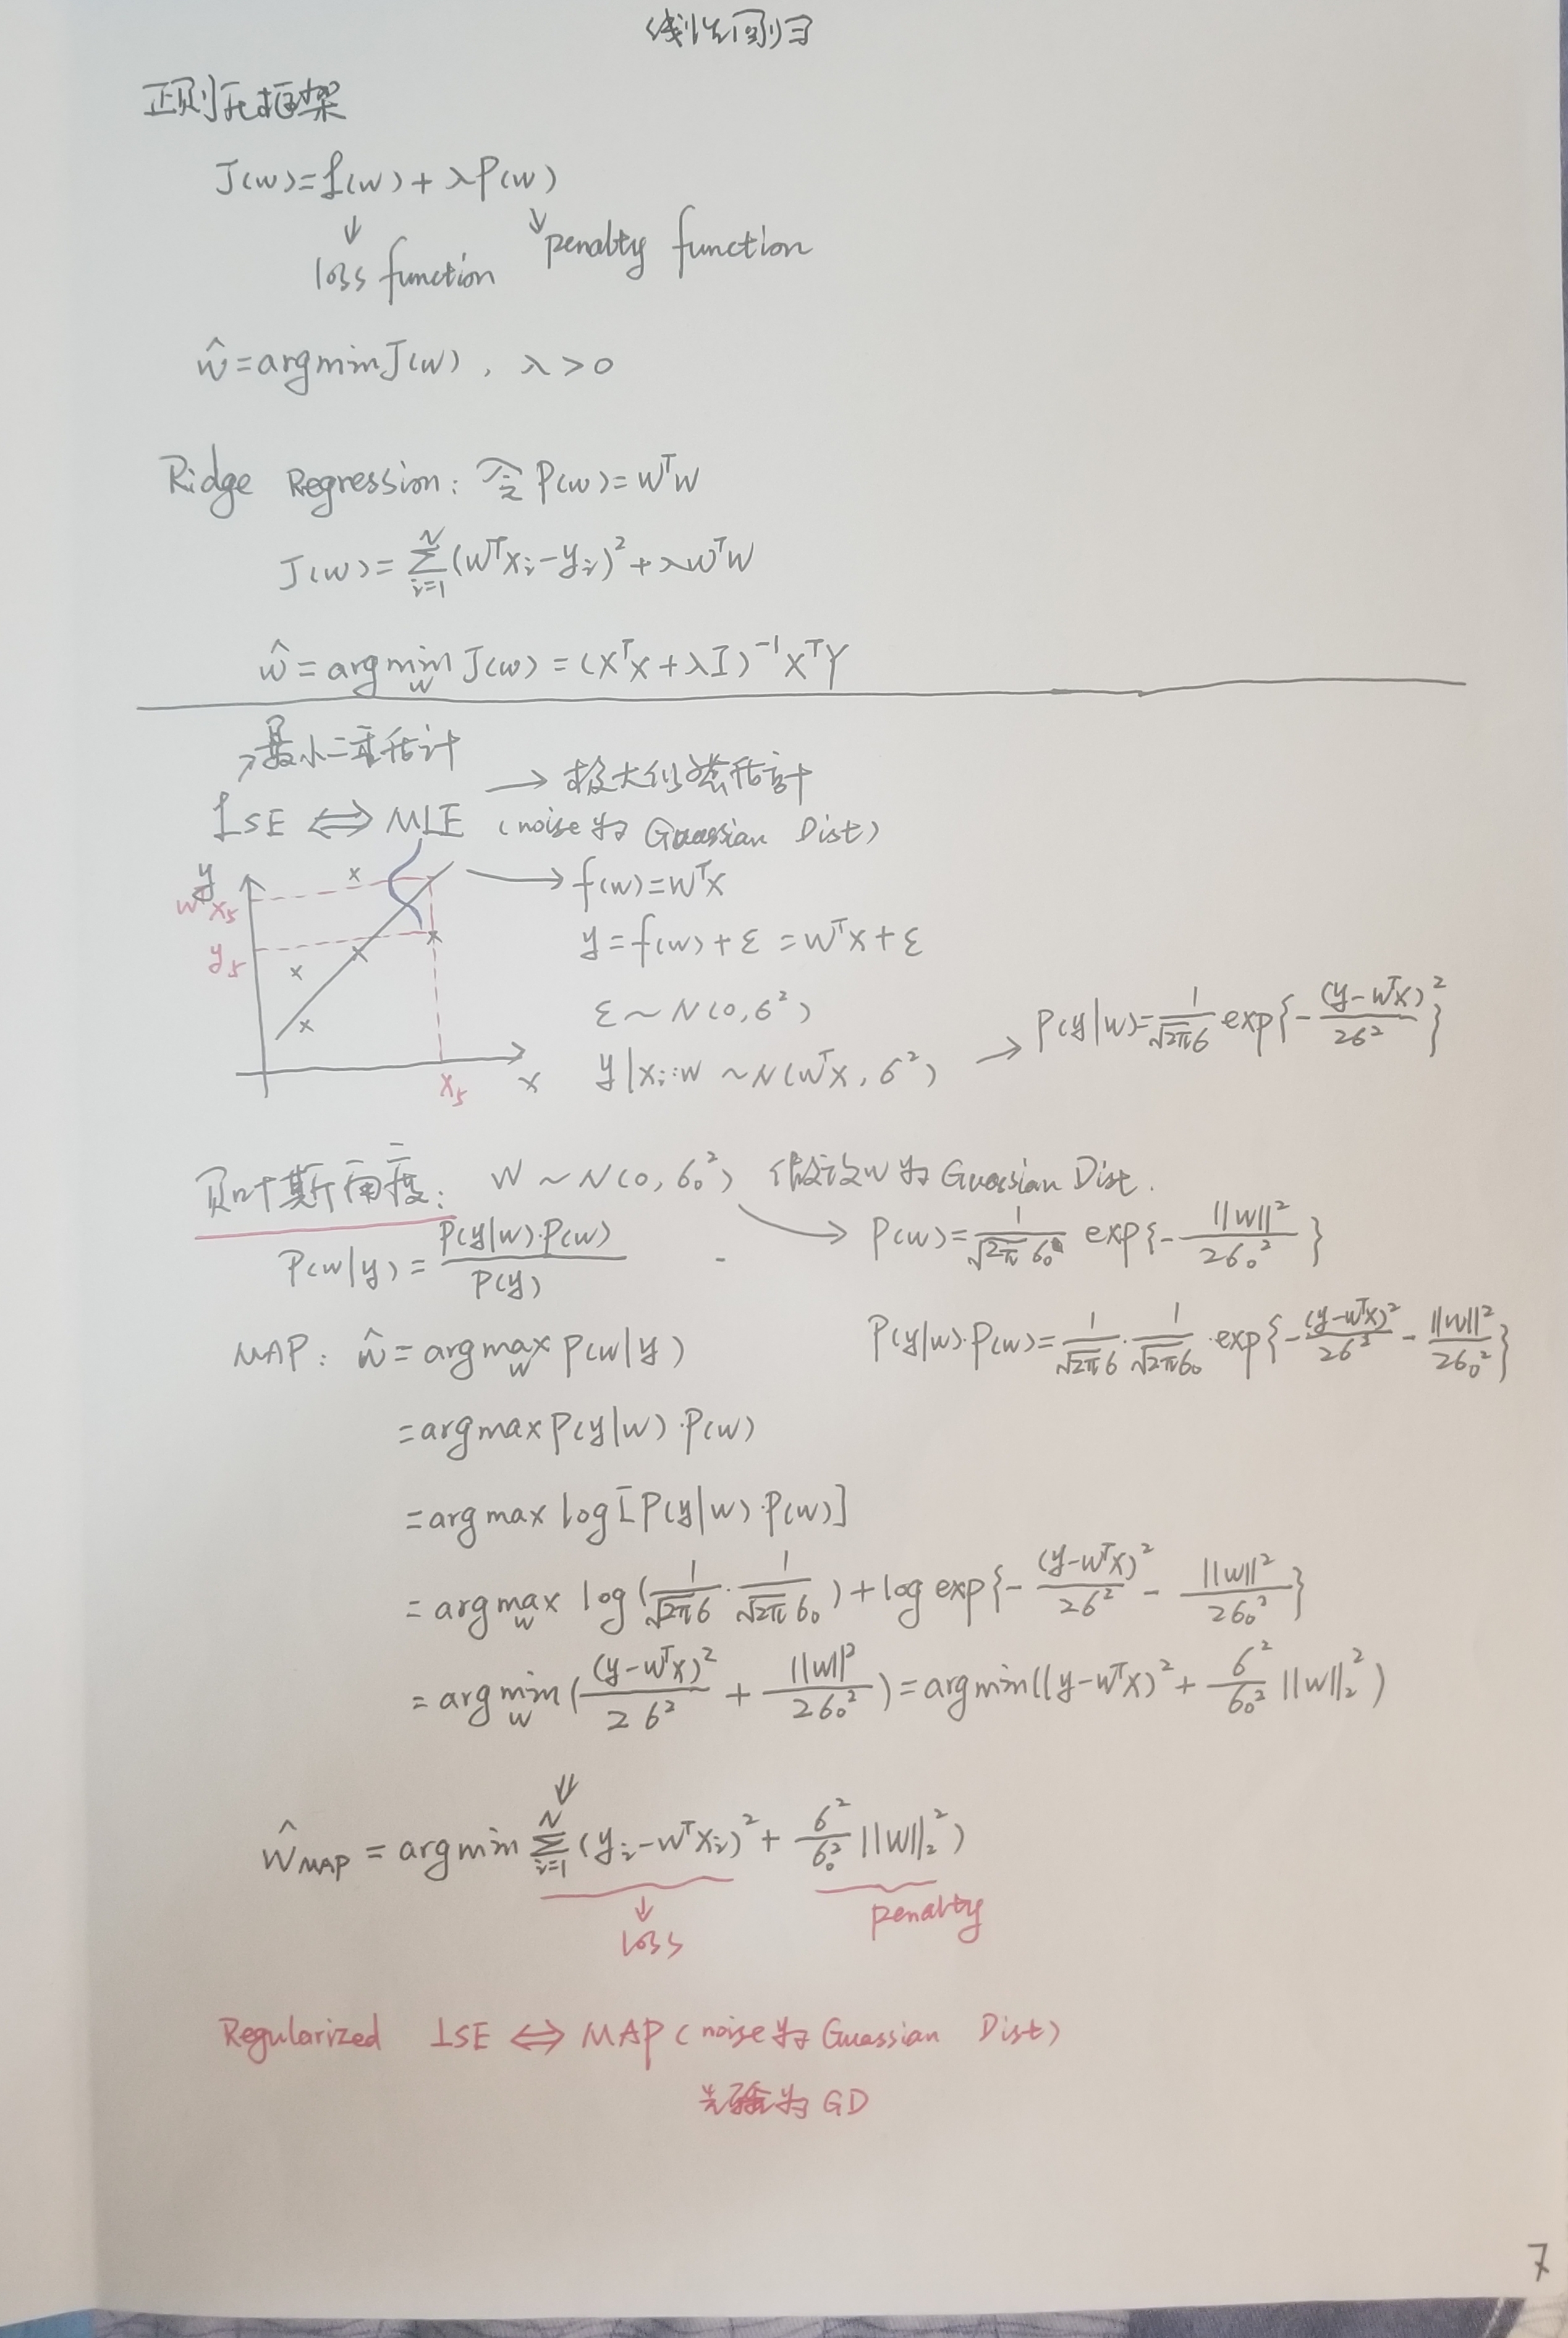 线性回归
正则化框架
J(w)=L(w)+λP(w)
↓ ↓
loss function penalty function
ŵ=argminJ(w), λ>0
Ridge Regression: 令P(w)=wᵀw
J(w)=∑ᵢ₌₁ᴺ(wᵀxᵢ-yᵢ)²+λwᵀw
ŵ=argmin_w J(w)=(XᵀX+λI)⁻¹XᵀY
↗最小二乘估计
→极大似然估计
LSE ⇔ MLE (noise为Guassian Dist)
y
wᵀx₅
y₅
x₅ x
→ f(w)=wᵀx
y=f(w)+ε=wᵀx+ε
ε~N(0,σ²)
y|xᵢ;w ~N(wᵀx, σ²) → P(y|w)=1/(√2π σ) exp{-(y-wᵀx)²/2σ²}
贝叶斯角度: w~N(0,σ₀²) 假设w为Guassian Dist.
→ P(w)=1/(√2π σ₀) exp{-||w||²/2σ₀²}
P(w|y)=P(y|w)·P(w)/P(y)
P(y|w)·P(w)=1/(√2π σ)·1/(√2π σ₀)·exp{-(y-wᵀx)²/2σ²-||w||²/2σ₀²}
MAP: ŵ=argmax_w P(w|y)
=argmaxP(y|w)·P(w)
=argmax log[P(y|w)·P(w)]
=argmax_w log(1/(√2π σ)·1/(√2π σ₀))+log exp{-(y-wᵀx)²/2σ²-||w||²/2σ₀²}
=argmin_w((y-wᵀx)²/2σ²+||w||²/2σ₀²)=argmin((y-wᵀx)²+σ²/σ₀² ||w||₂²)
⇓
ŵ_MAP=argmin∑ᵢ₌₁ᴺ(yᵢ-wᵀxᵢ)²+σ²/σ₀² ||w||₂²)
↓
loss penalty
Regularized LSE ⇔ MAP(noise为Guassian Dist)
先验为GD
7